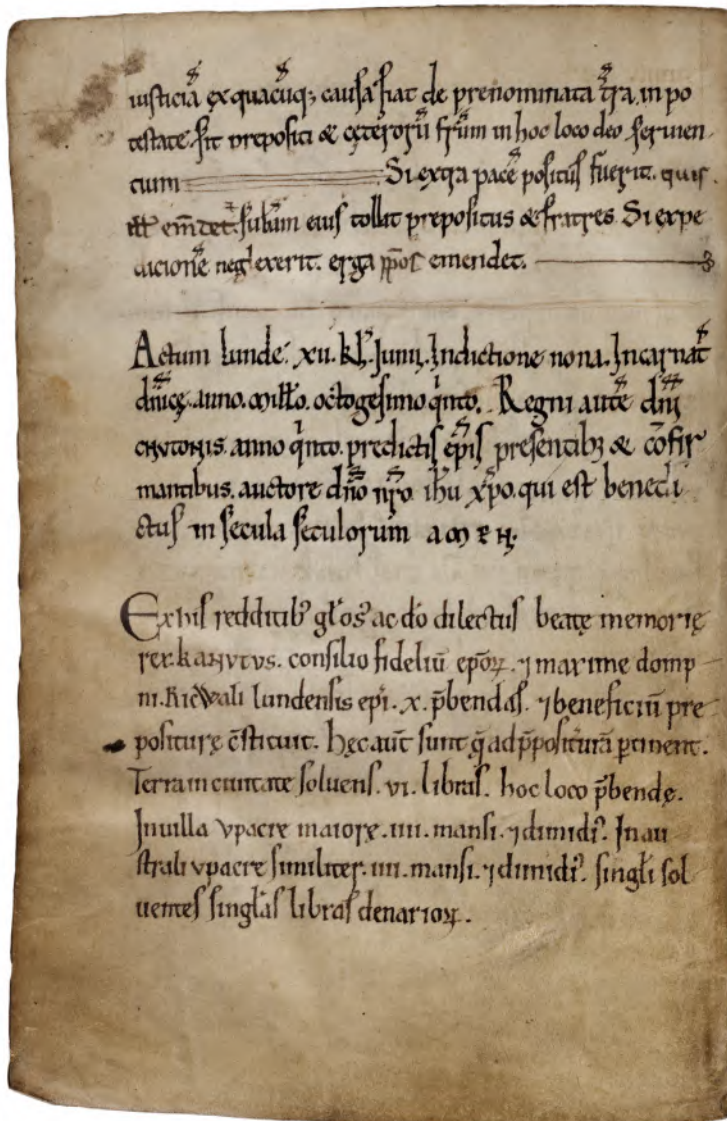 iusticiā ex quacūq; causa fiat de prenominata t̄ra. in po
testate sit prepositi & cęterorū fr̄um in hoc loco deo seruien
tium Si extra pacē positus fuerit. quis
emdet. eius tollit prepositus & fratres. Si expe
ditionē neglexerit. erga emendet.
Actum lunde. xii. kl̄. Junii. Indictione nona. Incarnat̄
dn̄icę. anno. millō. octogesimo qinto. Regni autē dn̄i
CNVTONIS. anno qinto. predictis ep̄is presentib; & cōfir
mantibus. auctore dn̄o nr̄o ihu xp̄o. qui est benedi
ctus in secula seculorum AMEN.
Ex his redditib' gl̄os' ac dō dilectus beatę memorię
rex. KANVTVS. consilio fideliū epōꝝ. ⁊ maxime domp
ni. Ricwali lundensis ep̄i. x. p̄bendas. ⁊ beneficiū pre
positurę c̄stituit. Hęc aut̄ sunt q̄ ad p̄positurā ptinent.
Terram ciuitate soluens. vi. libras. hoc loco p̄bendę.
In uilla vpacre maiorę. iiii. mansi. ⁊ dimidi'. In au
strali vpacre similiter. iiii. mansi. ⁊ dimidi'. singl̄i sol
uentes singl̄as libras denarioꝝ.